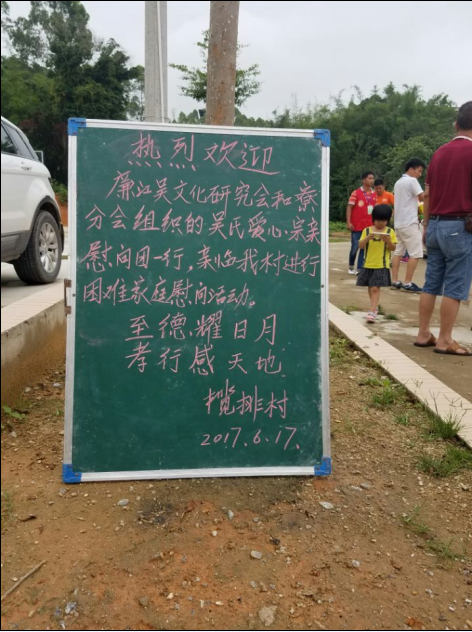 热烈欢迎
廉江吴文化研究会和寮
分会组织的吴氏爱心吴亲
慰问团一行，亲临我村进行
困难家庭慰问活动。
至德耀日月
孝行感天地
榄排村
2017.6.17.